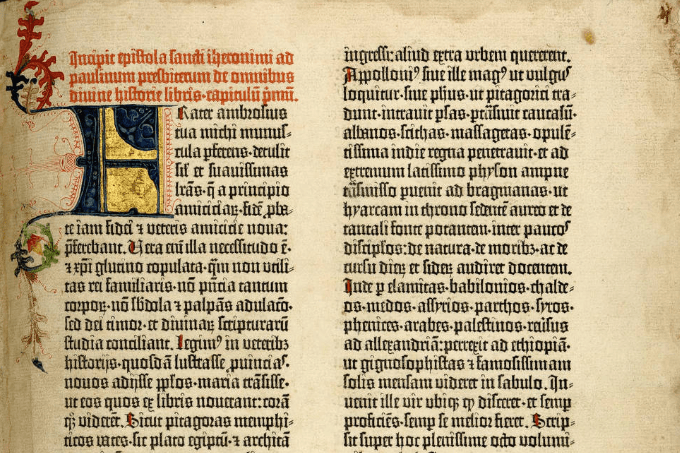 Incipit epistola sancti iheronimi ad
paulinum presbiterum de omnibus
divine historie libris· capitulū pͥmū.
Frater ambrosius
tua michi munus-
cula ꝑferens· detulit
sil̄ et suavissimas
lr̄as· q̄ a principio
amiciciaꝝ· fidē ꝓba-
te iam fidei ⁊ veteris amicicie nova:
ꝓferebant. Vera em̄ illa necessitudo ē·
⁊ xp̄i glutino copulata· qm̄ non utili-
tas rei familiaris· nō p̄ncia tantum
corpoꝝ· nō sb̄dola ⁊ palpās adulacō·
sed dei timor· et divinaꝝ scripturarū
studia conciliant. Legimꝰ in veteribꝫ
historijs· quosdā lustrasse ꝓuinciaˢ·
nouos adijsse pp̄los· maria trāsisse·
ut eos quos ex libris nouerant: corā
qꝫ viderēt. Sicut pitagoras memphi-
ticos vates· sic plato egiptū· ⁊ architā
ingressi: aliud extra urbem quererent.
Appolloniꝰ siue ille magꝰ ut vulgus
loquitur· siue ph̄us· ut pitagorici tra-
dunt· intrauit ꝑsas· ꝑtrāsiuit caucasū·
albanos· scithas· massagetas· opulē-
tissima indie regna penetrauit· et ad
extremum latissimo physon ampne
trāsmisso ꝑuenit ad bragmanas· ut
hyarcam in throno sedentē aureo et de
tantali fonte potantem· inter paucos
discip̄los: de natura· de moribꝫ· ac de
cursu dieꝝ et sideꝝ audiret docentem.
Inde ꝑ elamitas· babilonios· chalde-
os· medos· assyrios· parthos· syros·
phenices· arabes· palestinos· reūsus
ad allexandriā: perrexit ad ethiopiā·
ut gignosophistas ⁊ famosissimam
solis mensam videret in sabulo. In-
uenit ille vir ubiqꝫ qd̄ disceret· et semp
proficiēs· semp se melior fieret. Scrip-
sit super hoc plenissime octo volumi-